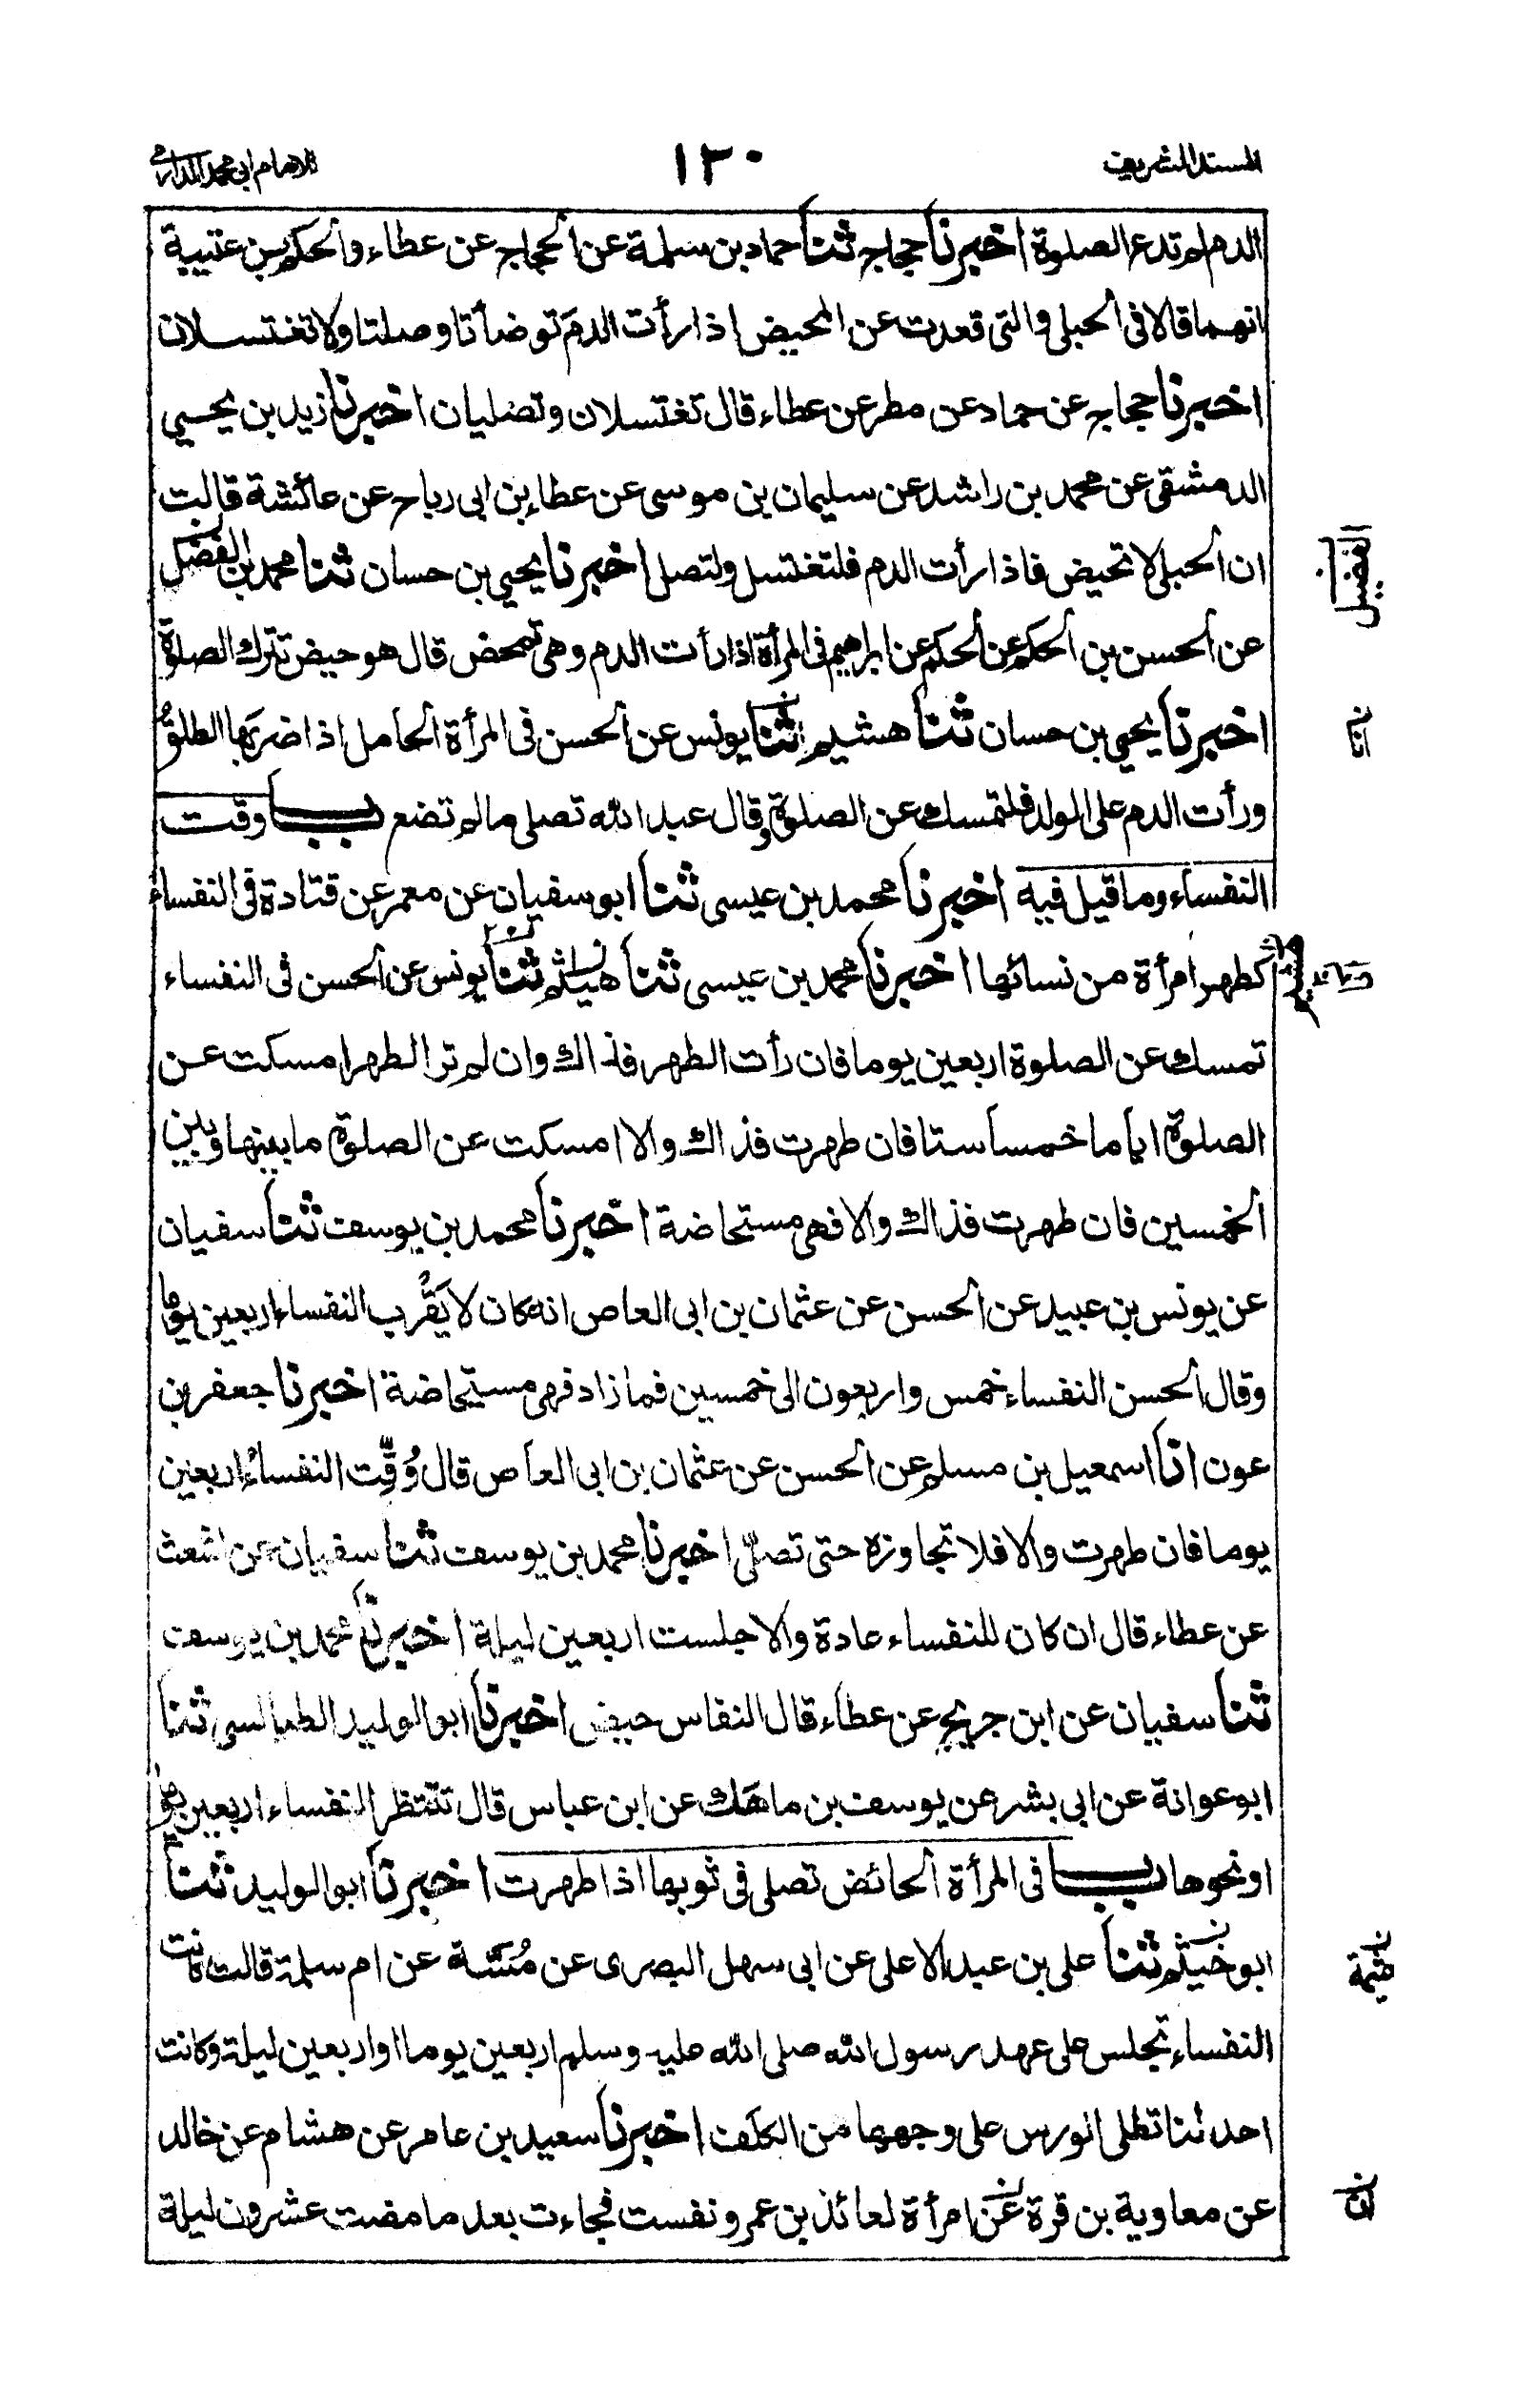 المسند الشريف
١٣٠
للامام ابي محمد الدارمي
الدم لم تدع الصلوة اخبرنا حجاج ثنا حماد بن سلمة عن الحجاج عن عطاء والحكم بن عتيبة
انهما قالا فى الحبلى والتى قعدت عن المحيض اذا رأت الدمَ توضأتا وصلتا ولا تغتسلان
اخبرنا حجاج عن حماد عن مطر عن عطاء قال تغتسلان وتصليان اخبرنا زيد بن يحيى
الدمشقى عن محمد بن راشد عن سليمان بن موسى عن عطاء بن ابى رباح عن عائشة قالت
ان الحبلى لا تحيض فاذا رأت الدم فلتغتسل ولتصل اخبرنا يحيى بن حسان ثنا محمد بن الفضل
الفضيل
عن الحسن بن الحكم عن الحكم عن ابراهيم فى المرأة اذا رأت الدم وهى تمخض قال هو حيض تترك الصلوة
اخبرنا يحيى بن حسان ثنا هشيم ثنا يونس عن الحسن فى المرأة الحامل اذا ضربَها الطلقُ
انا
ورأت الدم على الولد فلتمسك عن الصلوة وقال عبد الله تصلى ما لم تضع باب وقت
النفساء وما قيل فيه اخبرنا محمد بن عيسى ثنا ابو سفيان عن معمر عن قتادة فى النفساء
كطهر امرأة من نسائها اخبرنا محمد بن عيسى ثنا هشيم ثنا يونس عن الحسن فى النفساء
تمسك عن الصلوة اربعين يوما فان رأت الطهر فذاك وان لم تر الطهر امسكت عن
الصلوة اياما خمسا ستا فان طهرت فذاك والا امسكت عن الصلوة ما بينها وبين
الخمسين فان طهرت فذاك والا فهى مستحاضة اخبرنا محمد بن يوسف ثنا سفيان
عن يونس بن عبيد عن الحسن عن عثمان بن ابى العاص انه كان لا يَقْرُب النفساء اربعين يوما
وقال الحسن النفساء خمس واربعون الى خمسين فما زاد فهى مستحاضة اخبرنا جعفر بن
عون انا اسمعيل بن مسلم عن الحسن عن عثمان بن ابى العاص قال وُقِّت النفساءُ اربعين
يوما فان طهرت والا فلا تجاوزه حتى تصلّى اخبرنا محمد بن يوسف ثنا سفيان عن اشعث
عن عطاء قال ان كان للنفساء عادة والا جلست اربعين ليلة اخبرنا محمد بن يوسف
ثنا سفيان عن ابن جريج عن عطاء قال النفاس حيض اخبرنا ابو الوليد الطيالسى ثنا
ابو عوانة عن ابى بشر عن يوسف بن ماهَك عن ابن عباس قال تنتظر النفساء اربعين يوما
او نحوها باب فى المرأة الحائض تصلى فى ثوبها اذا طهرت اخبرنا ابو الوليد ثنا
ابو خيثم ثنا على بن عبد الاعلى عن ابى سهل البصرى عن مُسَّة عن ام سلمة قالت كانت
خيثمة
النفساء تجلس على عهد رسول الله صلى الله عليه وسلم اربعين يوما او اربعين ليلة وكانت
احدنا تطلى الورس على وجهها من الكلَف اخبرنا سعيد بن عامر عن هشام عن خالد
عن معاوية بن قرة عن امرأة لعائذ بن عمرو نفست فجاءت بعد ما مضت عشرون ليلة
ان